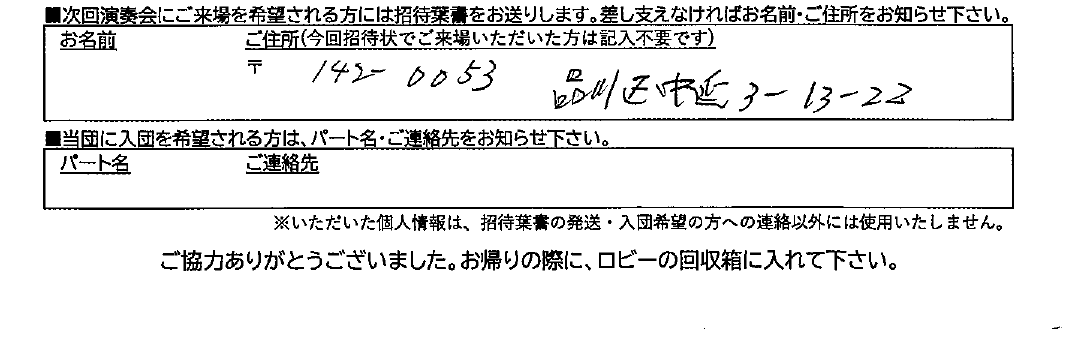 ■次回演奏会にご来場を希望される方には招待葉書をお送りします。差し支えなければお名前・ご住所をお知らせ下さい。
お名前 ご住所(今回招待状でご来場いただいた方は記入不要です)
〒 142-0053 品川区中延3-13-22
■当団に入団を希望される方は、パート名・ご連絡先をお知らせ下さい。
パート名 ご連絡先
※いただいた個人情報は、招待葉書の発送・入団希望の方への連絡以外には使用いたしません。
ご協力ありがとうございました。お帰りの際に、ロビーの回収箱に入れて下さい。